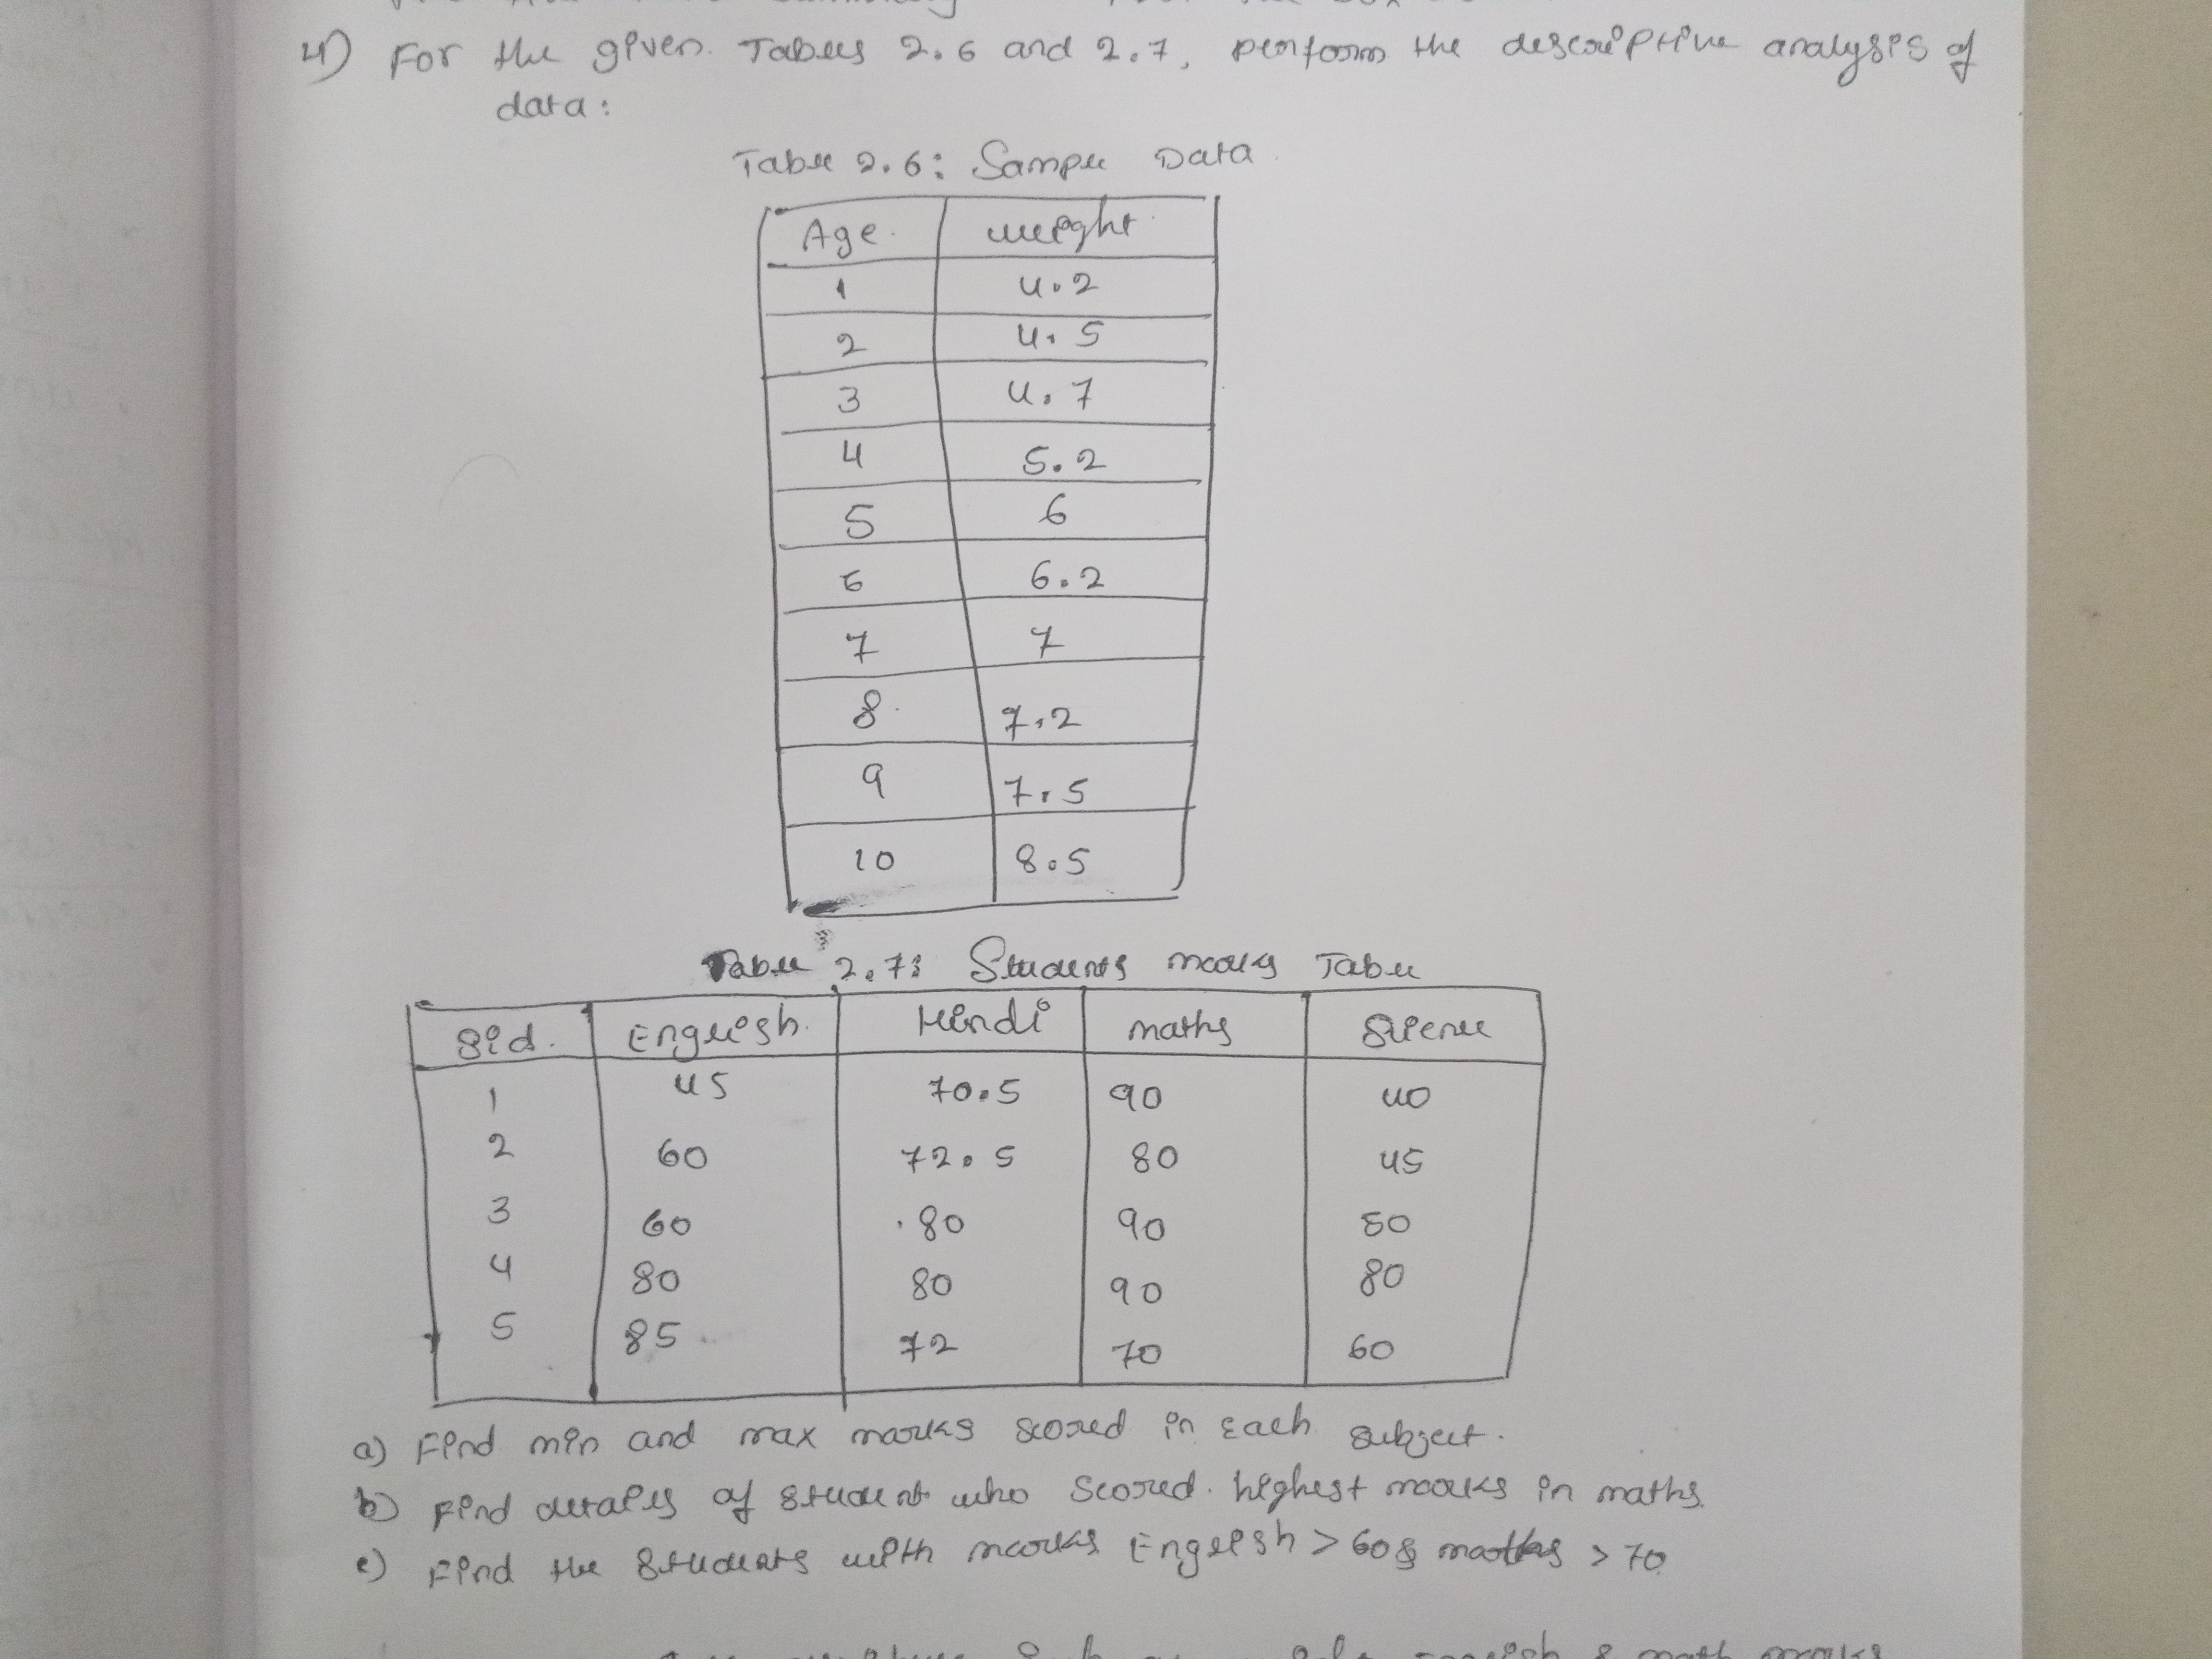 4) For the given Tables 2.6 and 2.7, perform the descriptive analysis of
data:
Table 2.6: Sample Data
Age weight
1 4.2
2 4.5
3 4.7
4 5.2
5 6
6 6.2
7 7
8 7.2
9 7.5
10 8.5
Table 2.7: Students marks Table
Sid. English Hindi maths Science
1 45 70.5 90 40
2 60 72.5 80 45
3 60 80 90 50
4 80 80 90 80
5 85 72 70 60
a) Find min and max marks scored in each subject.
b) Find details of student who scored highest marks in maths
c) Find the students with marks English > 60 & maths > 70
English & math marks